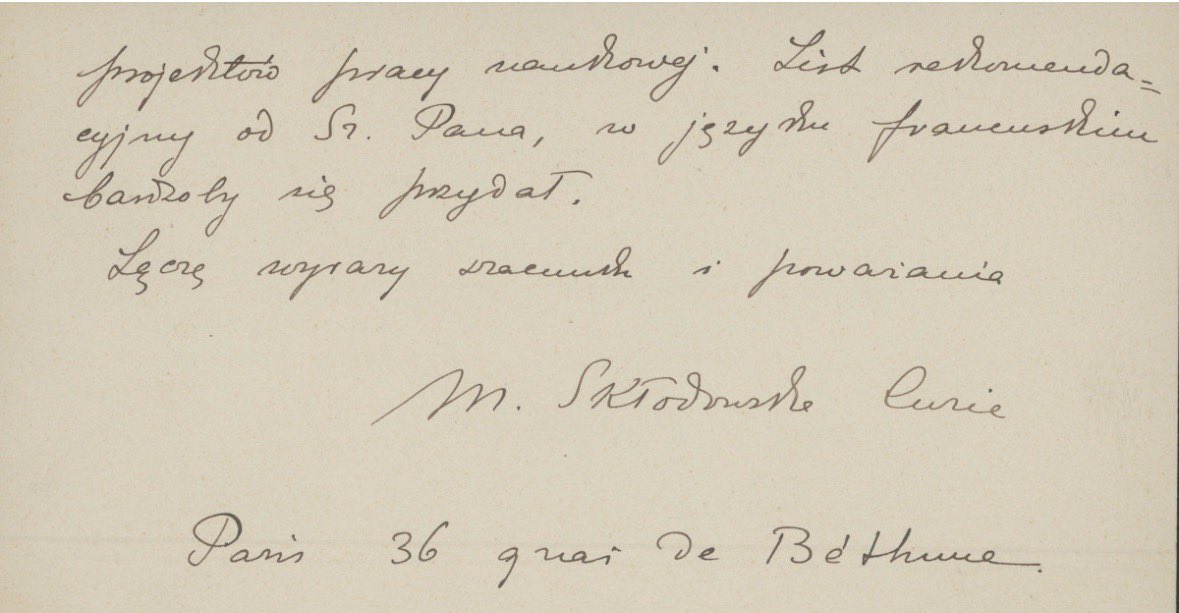 projektów pracy naukowej. List rekomenda=
cyjny od Sz. Pana, w języku francuskim
bardzoby się przydał.
Łączę wyrazy szacunku i poważania
M. Skłodowska Curie
Paris 36 quai de Béthune.